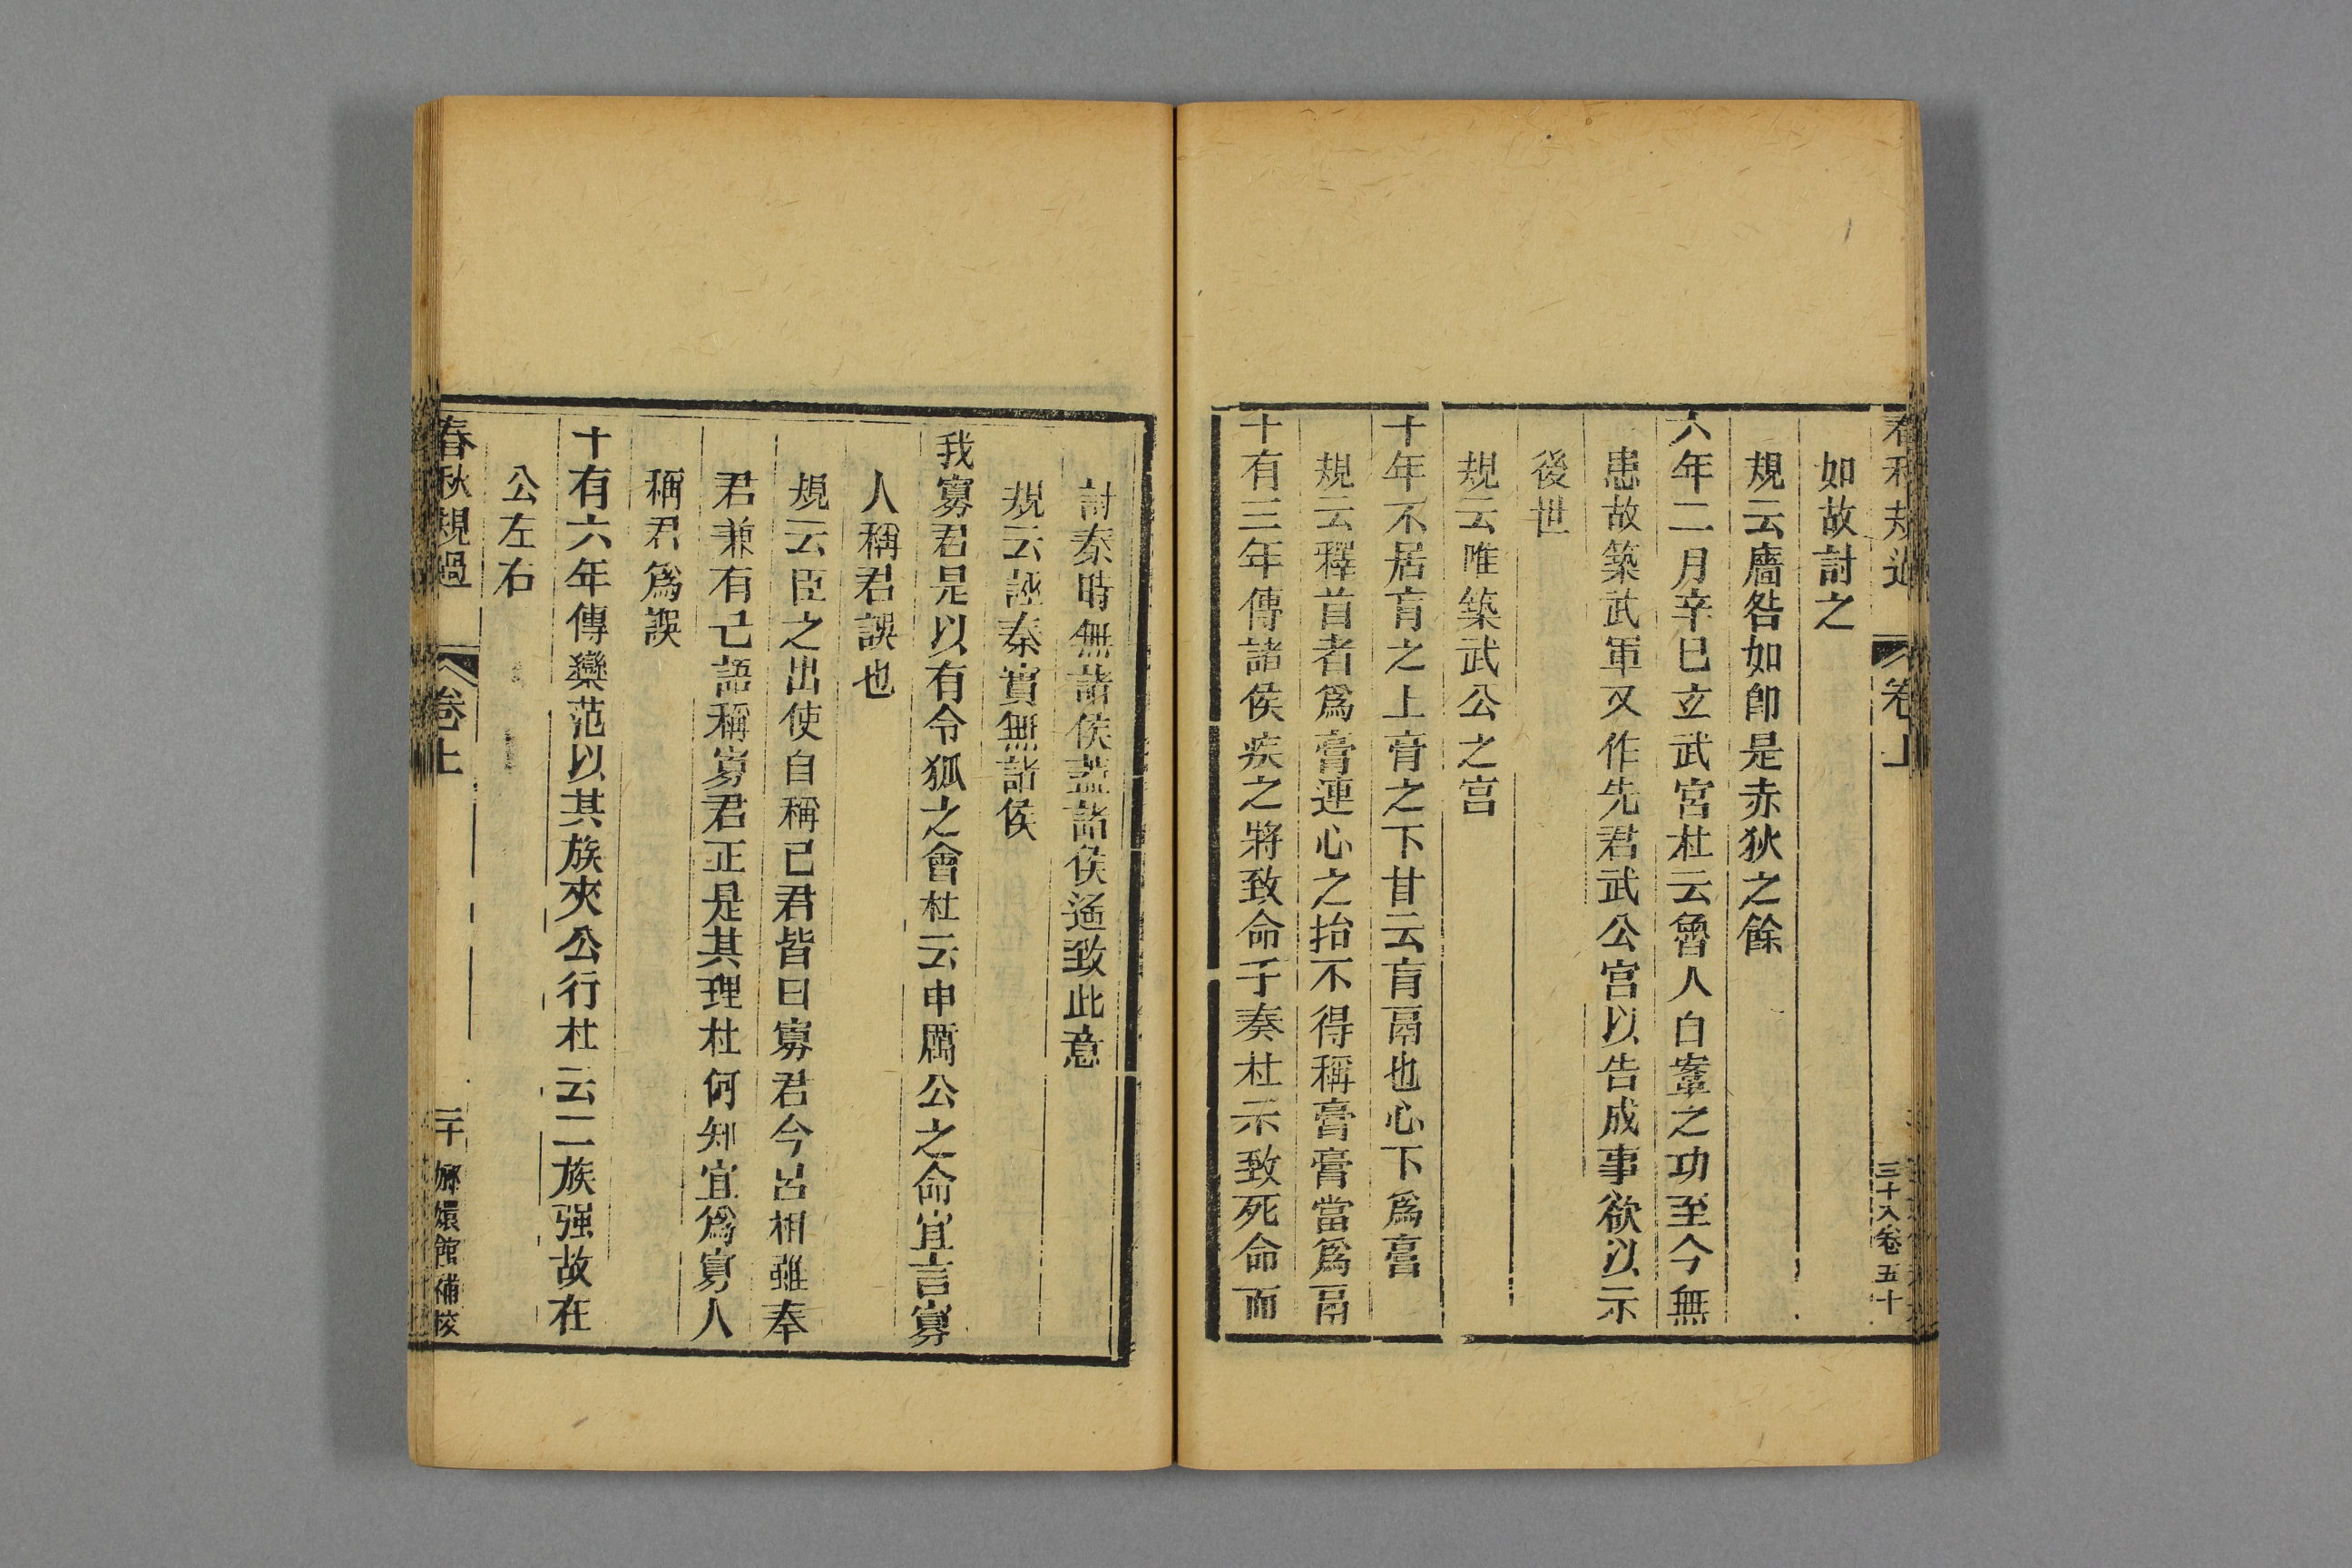 春秋規過
卷上
三十八卷五十
如故討之
規云廧咎如卽是赤狄之餘
六年二月辛巳立武宮杜云魯人自鞌之功至今無
患故築武軍又作先君武公宮以告成事欲以示
後世
規云唯築武公之宮
十年不居肓之上膏之下甘云肓鬲也心下爲膏
規云釋首者爲膏連心之㧈不得稱膏膏當爲鬲
十有三年傳諸侯疾之將致命于秦杜示致死命而
討秦時無諸侯蓋諸侯遙致此意
規云誣秦實無諸侯
我寡君是以有令狐之會杜云申厲公之命宜言寡
人稱君誤也
規云臣之出使自稱已君皆曰寡君今呂相雖奉
君兼有己語稱寡君正是其理杜何知宜爲寡人
稱君爲誤
十有六年傳欒范以其族夾公行杜云二族强故在
公左右
春秋規過
卷上
二十
嫏嬛館補校